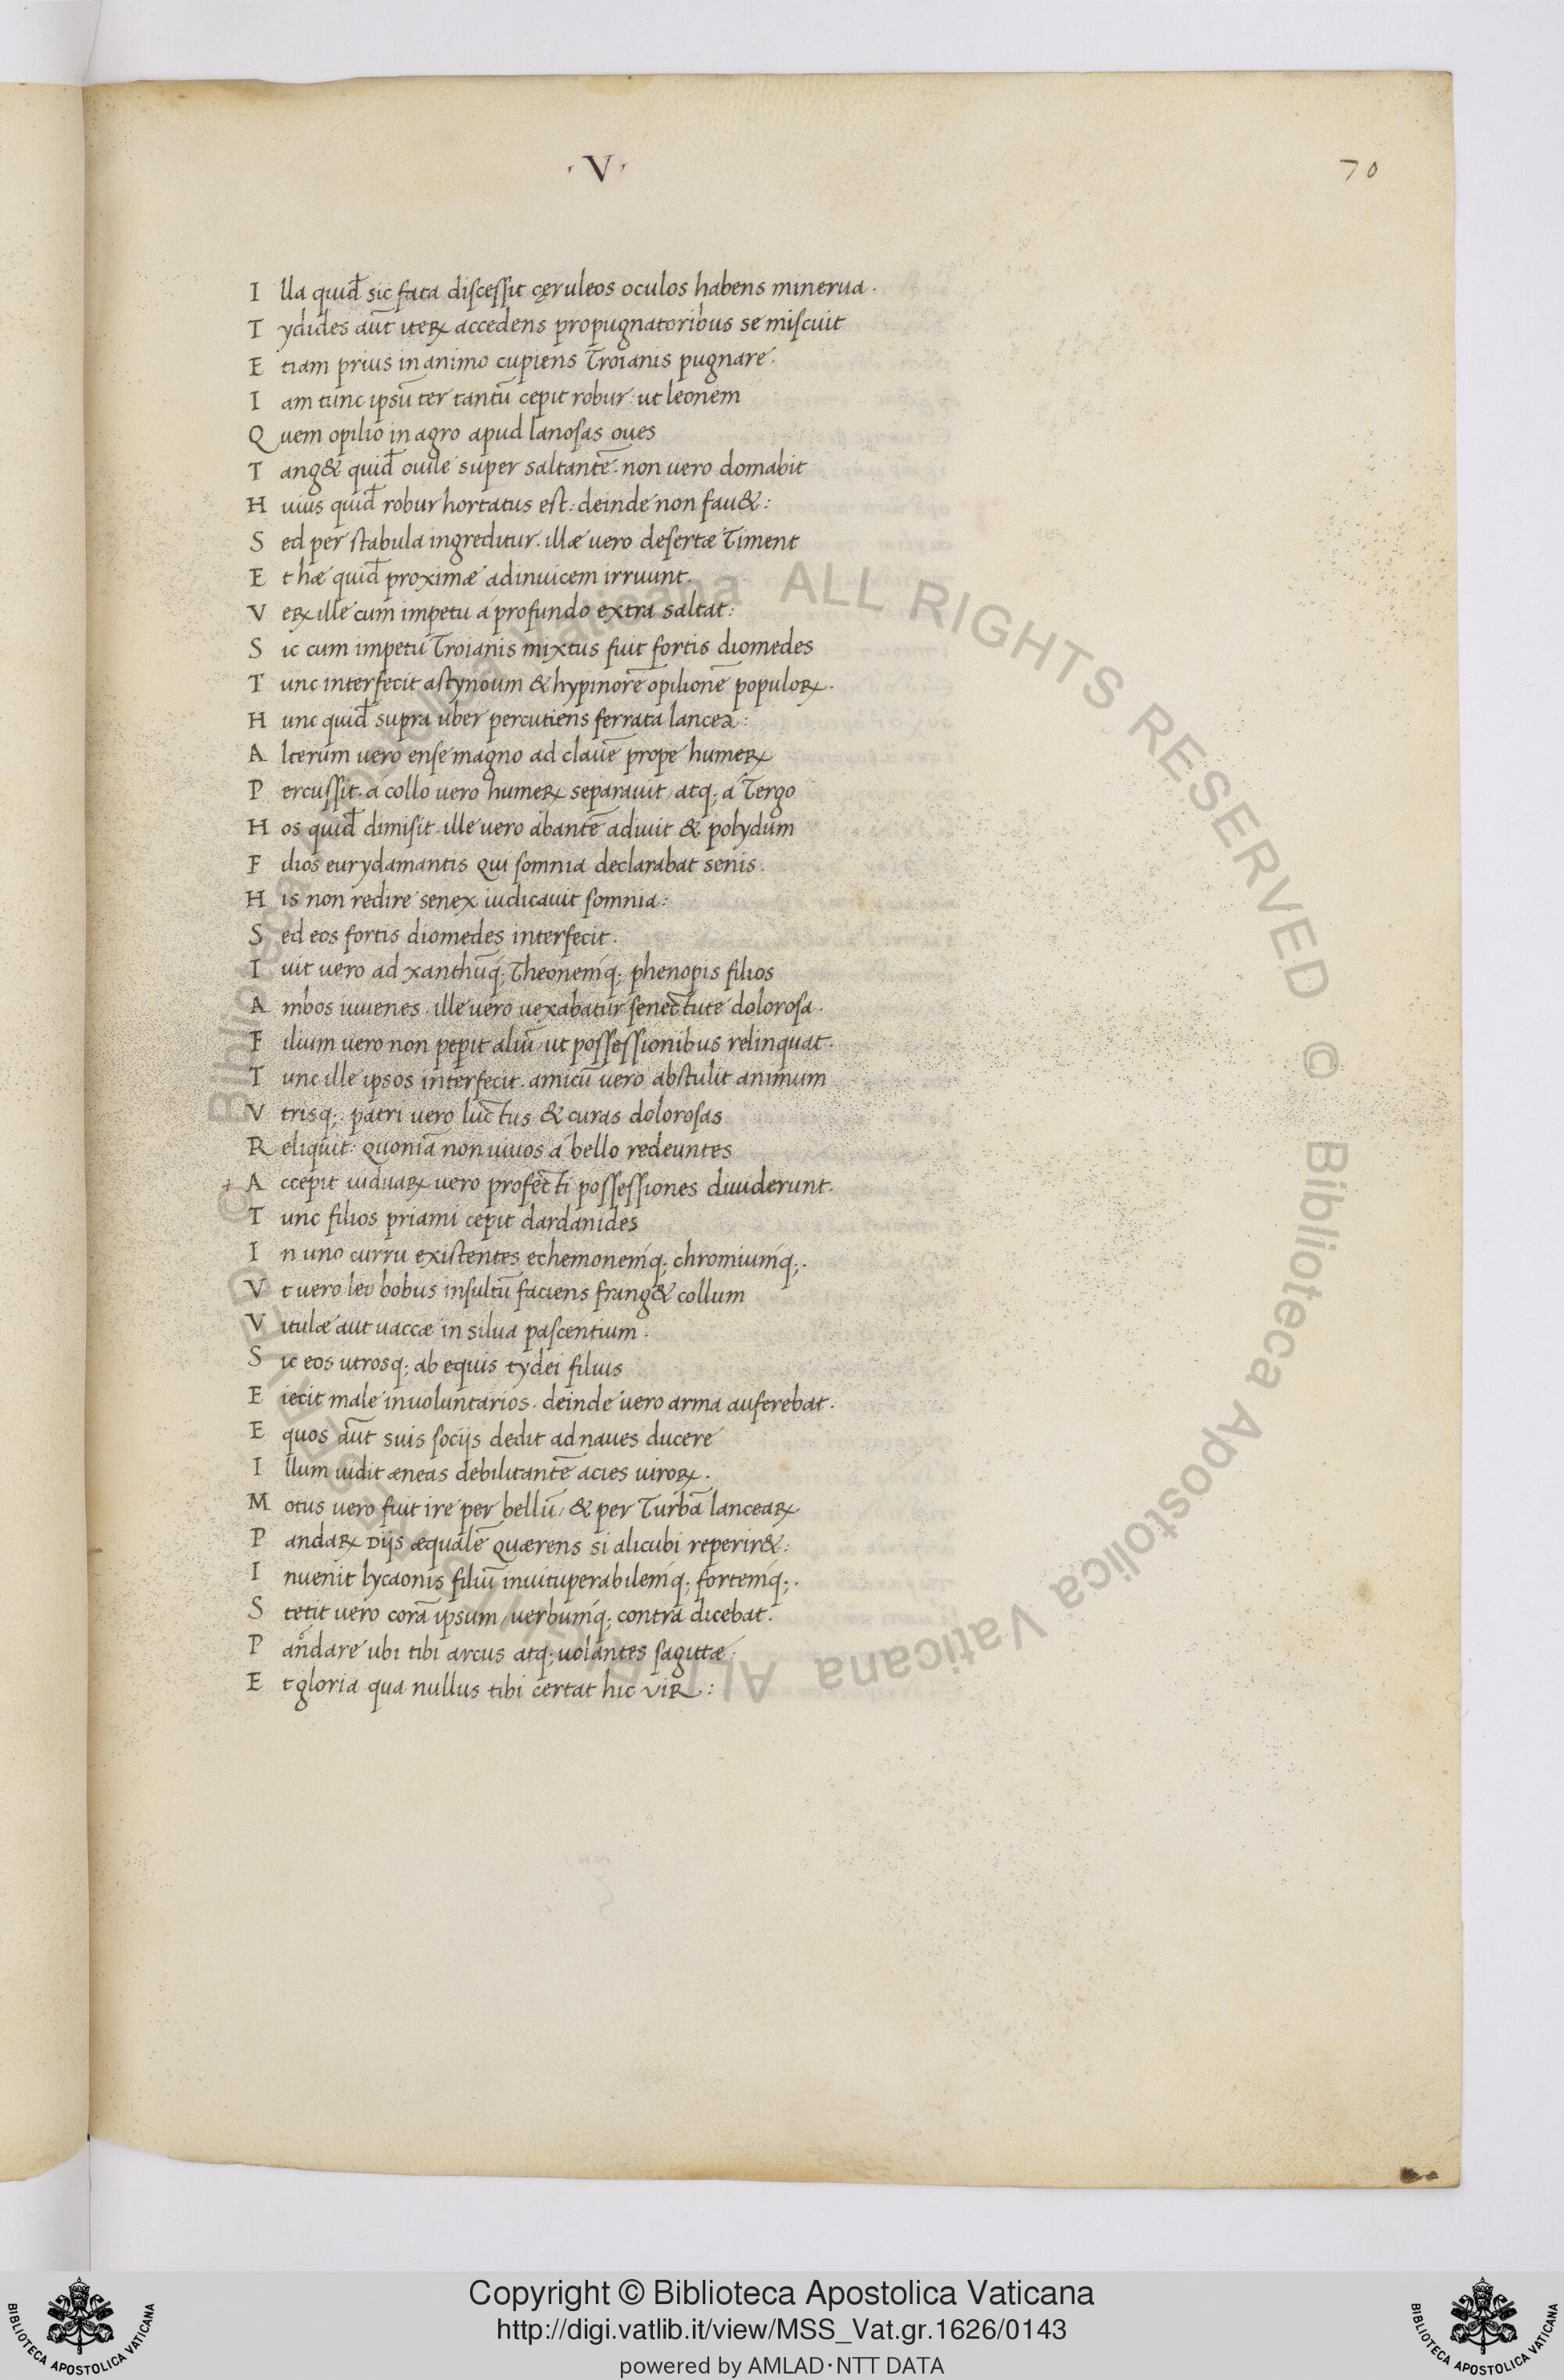 · V ·
70
I lla quid̄ sic fata discessit cęruleos oculos habens minerua .
T ydides aūt iteꝝ accedens propugnatoribus se miscuit
E tiam prius in animo cupiens Troianis pugnare .
I am tunc ipsū ter tantū cepit robur : ut leonem
Q uem opilio in agro apud lanosas oues
T ang& quid̄ ouile super saltantē . non uero domabit
H uius quid̄ robur hortatus est : deinde non fau& :
S ed per stabula ingreditur . illæ uero desertæ Timent
E t hæ quid̄ proximæ adinuicem irruunt .
V eꝝ ille cum impetu a profundo extra saltat :
S ic cum impetu Troianis mixtus fuit fortis diomedes
T unc interfecit astynoum & hypinorē opilionē populoꝝ .
H unc quid̄ supra uber percutiens ferrata lancea :
A lterum uero ense magno ad clauē prope humeꝝ
P ercussit . a collo uero humeꝝ separauit / atq; a Tergo
H os quid̄ dimisit . ille uero abantē adiuit & polydum
F ilios eurydamantis qui somnia declarabat senis .
H is non redire senex iudicauit somnia :
S ed eos fortis diomedes interfecit .
I uit uero ad xanthūq; Theonemq; phenopis filios
A mbos iuuenes . ille uero uexabatur senectute dolorosa .
F ilium uero non pepit aliū / ut possessionibus relinquat .
T unc ille ipsos interfecit . amicū uero abstulit animum
V trisq; . patri uero luctus & curas dolorosas
R eliquit : quoniā non uiuos a bello redeuntes
+ A ccepit uiduaꝝ uero profecti possessiones diuiderunt .
T unc filios priami cepit dardanides
I n uno curru existentes echemonemq; chromiumq; .
V t uero leo bobus insultū faciens frang& collum
V itulæ aut uaccæ in silua pascentium .
S ic eos utrosq; ab equis tydei filius
E iecit male inuoluntarios . deinde uero arma auferebat .
E quos aūt suis socijs dedit ad naues ducere
I llum uidit æneas debilitantē acies uiroꝝ .
M otus uero fuit ire per bellū / & per Turbā lanceaꝝ
P andaꝝ Dijs æqualē quærens si alicubi reperir& :
I nuenit lycaonis filiū inuituperabilemq; fortemq; .
S tetit uero corā ipsum / uerbumq; contra dicebat .
P andare ubi tibi arcus atq; uolantes sagittæ :
E t gloria qua nullus tibi certat hic viR :
© Biblioteca Apostolica Vaticana ALL RIGHTS RESERVED © Biblioteca Apostolica Vaticana ALL RIGHTS RESERVED
Copyright © Biblioteca Apostolica Vaticana
http://digi.vatlib.it/view/MSS_Vat.gr.1626/0143
powered by AMLAD·NTT DATA
BIBLIOTECA APOSTOLICA VATICANA
BIBLIOTECA APOSTOLICA VATICANA